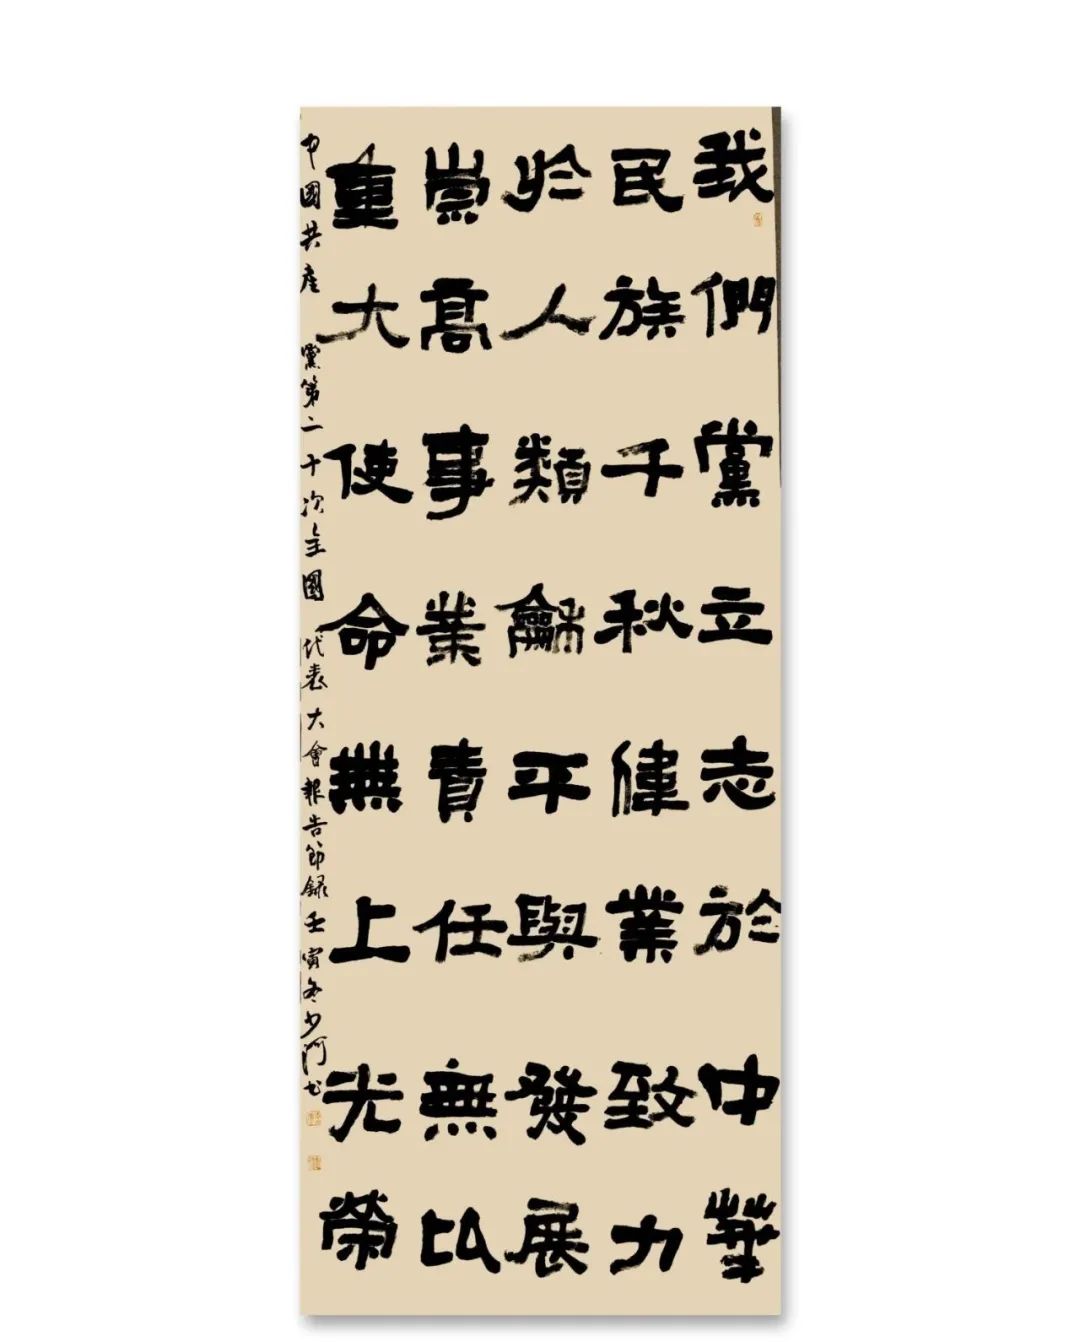 我們黨立志於中華
民族千秋偉業致力
於人類龢平與發展
崇高事業責任無比
重大使命無上光榮
中國共產黨第二十次全國代表大會報告節錄壬寅冬少河書